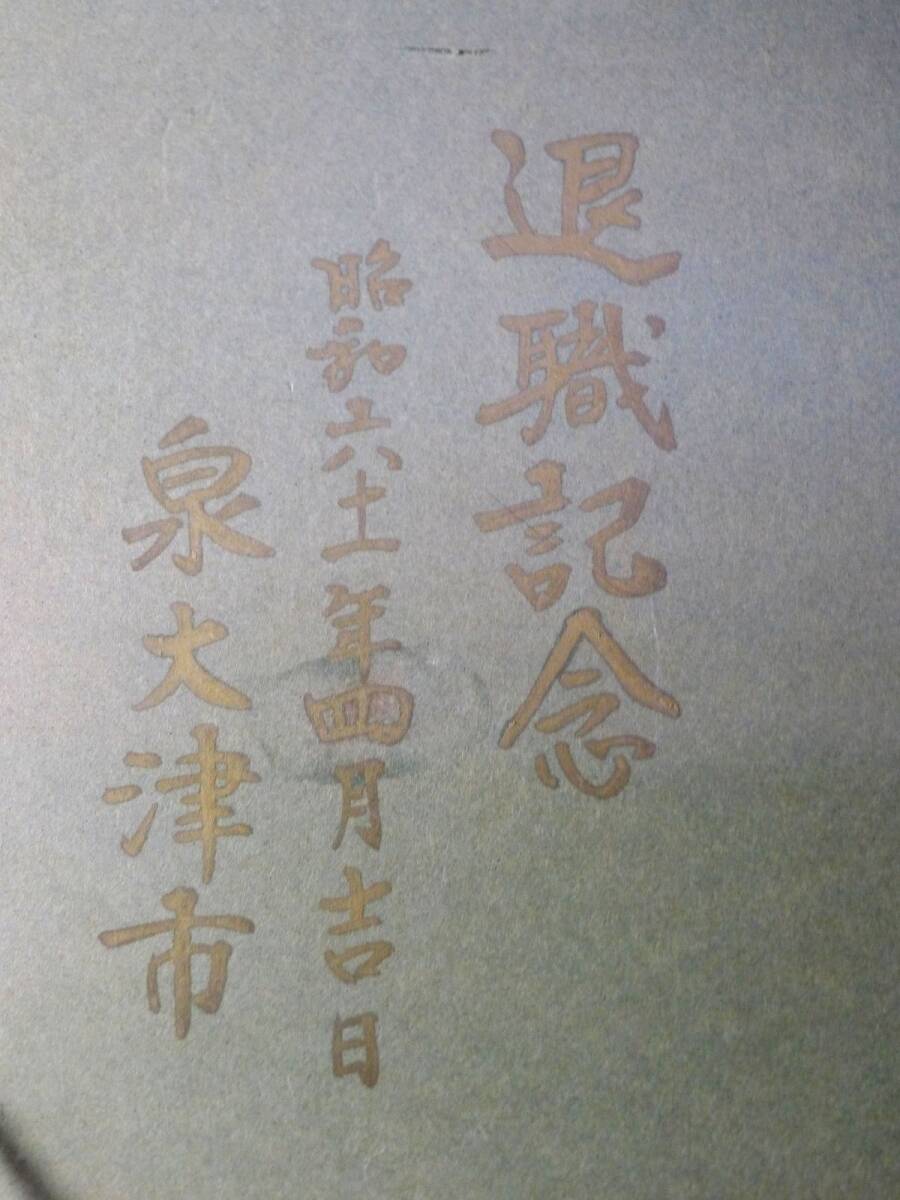 退職記念
昭和六十一年四月吉日
泉大津市